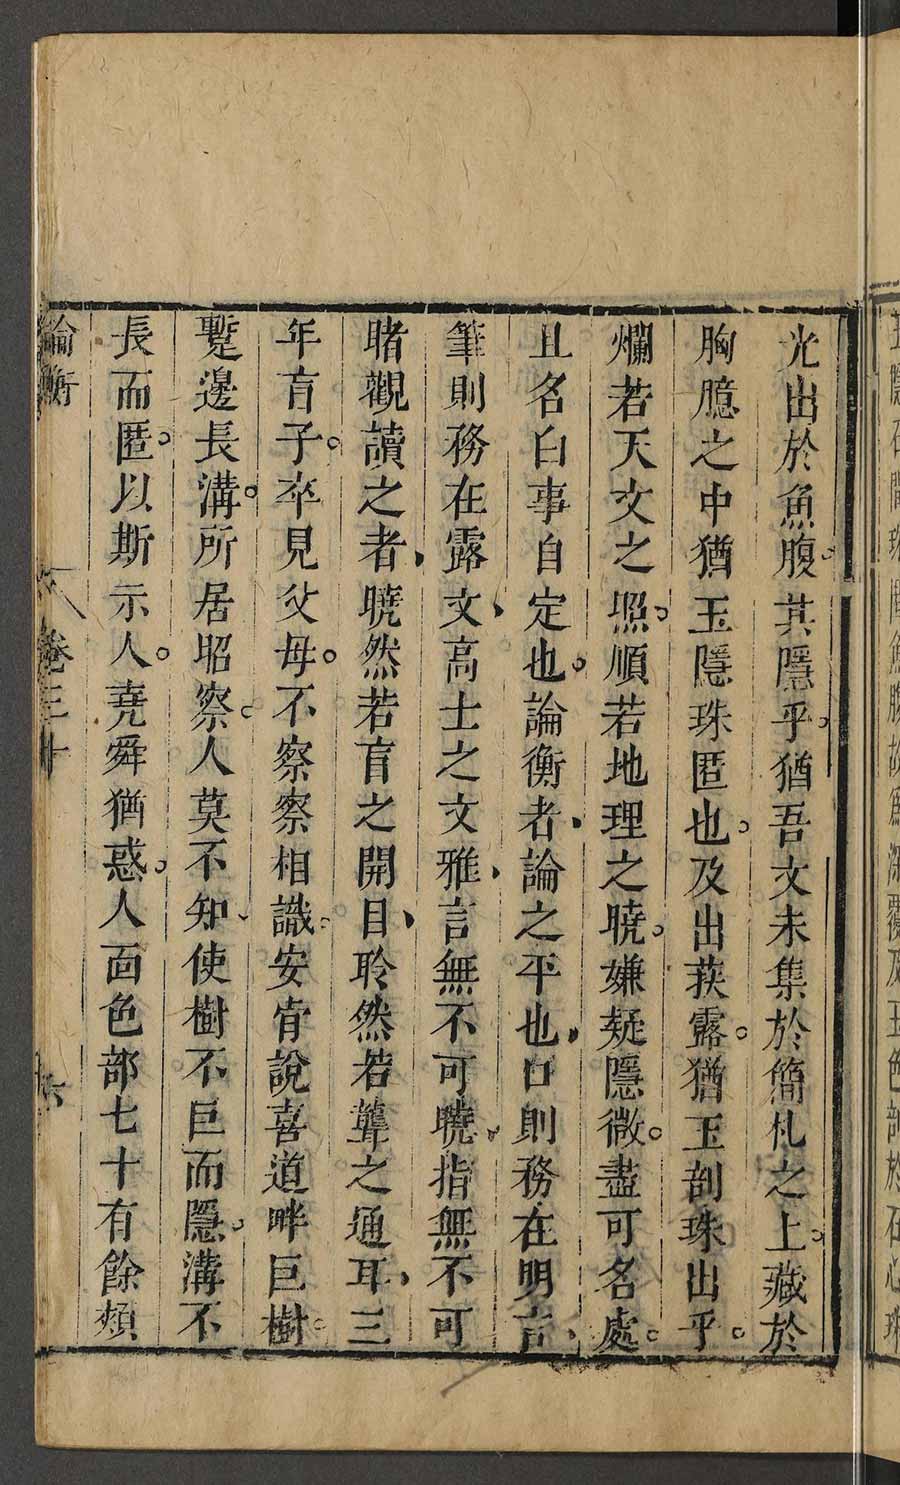 光出於魚腹。其隱乎。猶吾文未集於簡札之上。藏於
胸臆之中猶玉隱珠匿也。及出荴露。猶玉剖珠出乎。
爛若天文之照。順若地理之曉。嫌疑隱微。盡可名處。
且名白事自定也。論衡者、論之平也、口則務在明言、
筆則務在露文、高士之文雅、言無不可曉、指無不可
睹觀讀之者、曉然若盲之開目、聆然若聾之通耳、三
年盲子。卒見父母。不察察相識。安肯說喜道畔巨樹。
塹邊長溝。所居昭察。人莫不知、使樹不巨而隱。溝不
長而匿。以斯示人。堯舜猶惑。人面色部七十有餘頰
論衡 卷三十 六